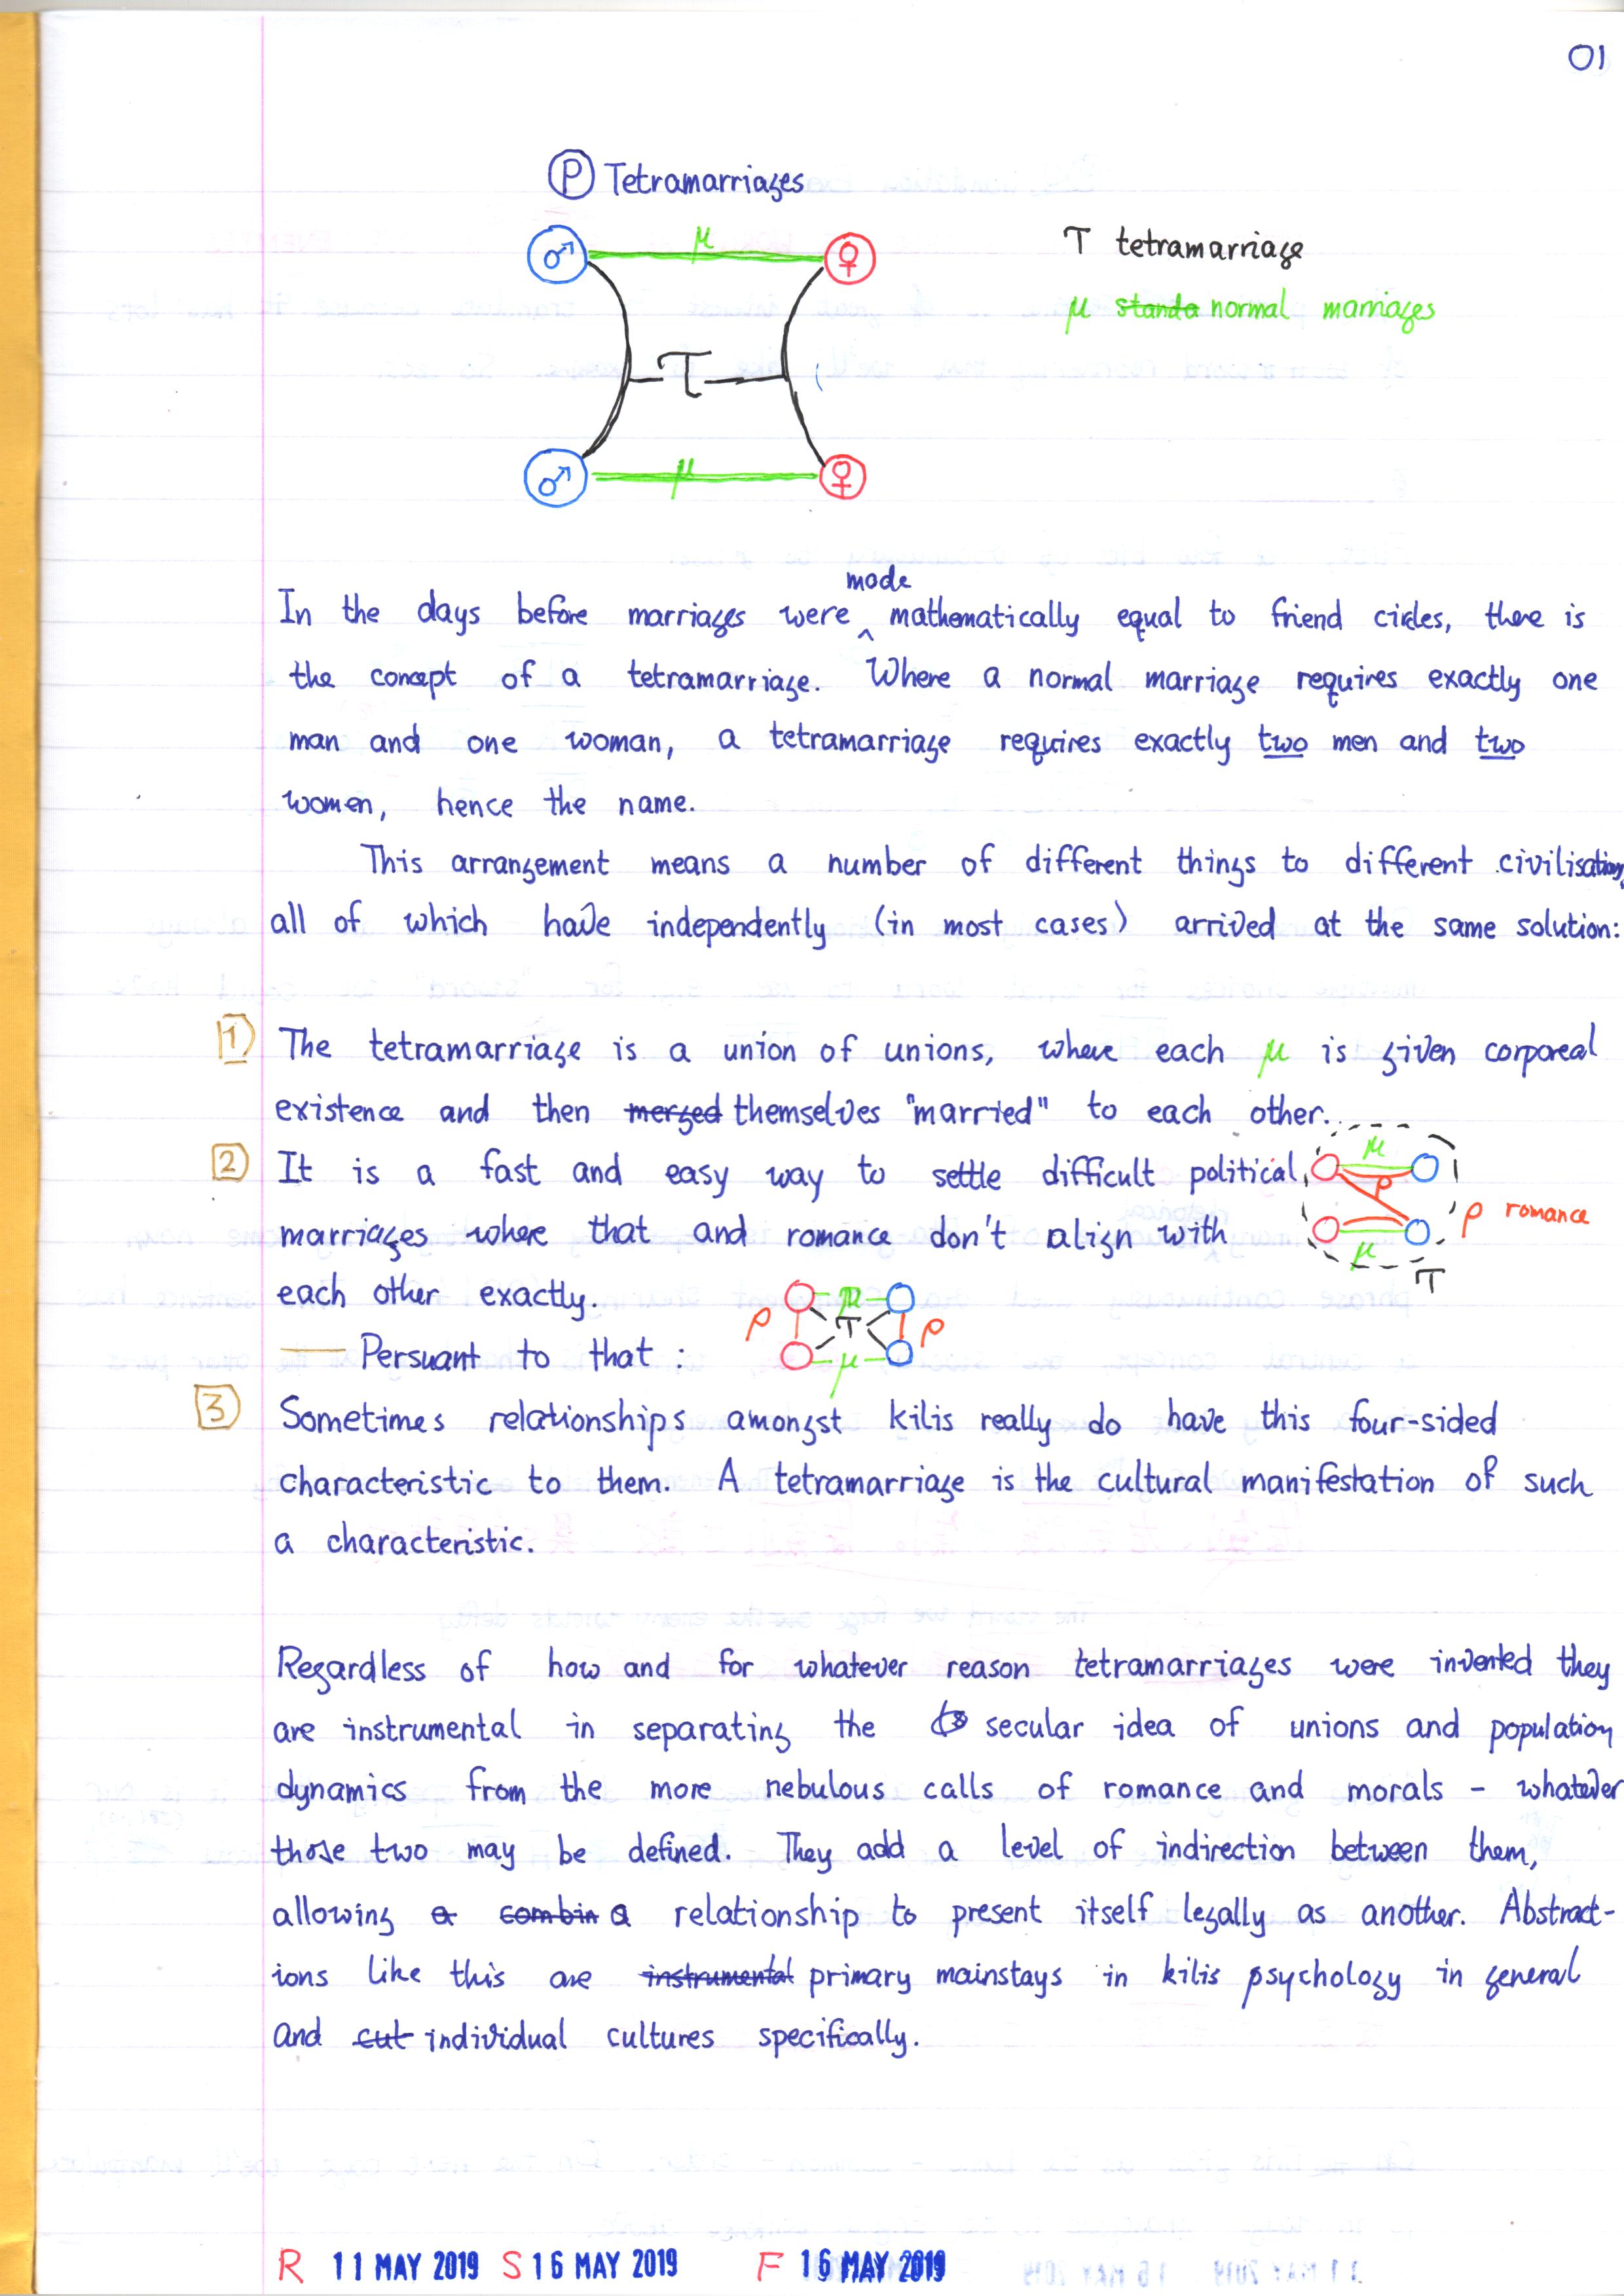 01
Ⓟ Tetramarriages
♂ μ ♀
T tetramarriage
μ standa normal marriages
T
♂ μ ♀
mode
In the days before marriages were ‸ mathematically equal to friend circles, there is
the concept of a tetramarriage. Where a normal marriage requires exactly one
man and one woman, a tetramarriage requires exactly two men and two
women, hence the name.
This arrangement means a number of different things to different civilisations,
all of which have independently (in most cases) arrived at the same solution:
1 The tetramarriage is a union of unions, where each μ is given corporeal
existence and then merged themselves "married" to each other.
2 It is a fast and easy way to settle difficult political
marriages where that and romance don't align with
each other exactly.
μ
ρ
μ
T
ρ romance
Persuant to that :
ρ μ T μ ρ
3 Sometimes relationships amongst kilis really do have this four-sided
characteristic to them. A tetramarriage is the cultural manifestation of such
a characteristic.
Regardless of how and for whatever reason tetramarriages were invented they
are instrumental in separating the secular idea of unions and population
dynamics from the more nebulous calls of romance and morals - whatever
those two may be defined. They add a level of indirection between them,
allowing a combin a relationship to present itself legally as another. Abstract-
ions like this are instrumental primary mainstays in kilis psychology in general
and cut individual cultures specifically.
R 11 MAY 2019 S 16 MAY 2019 F 16 MAY 2019